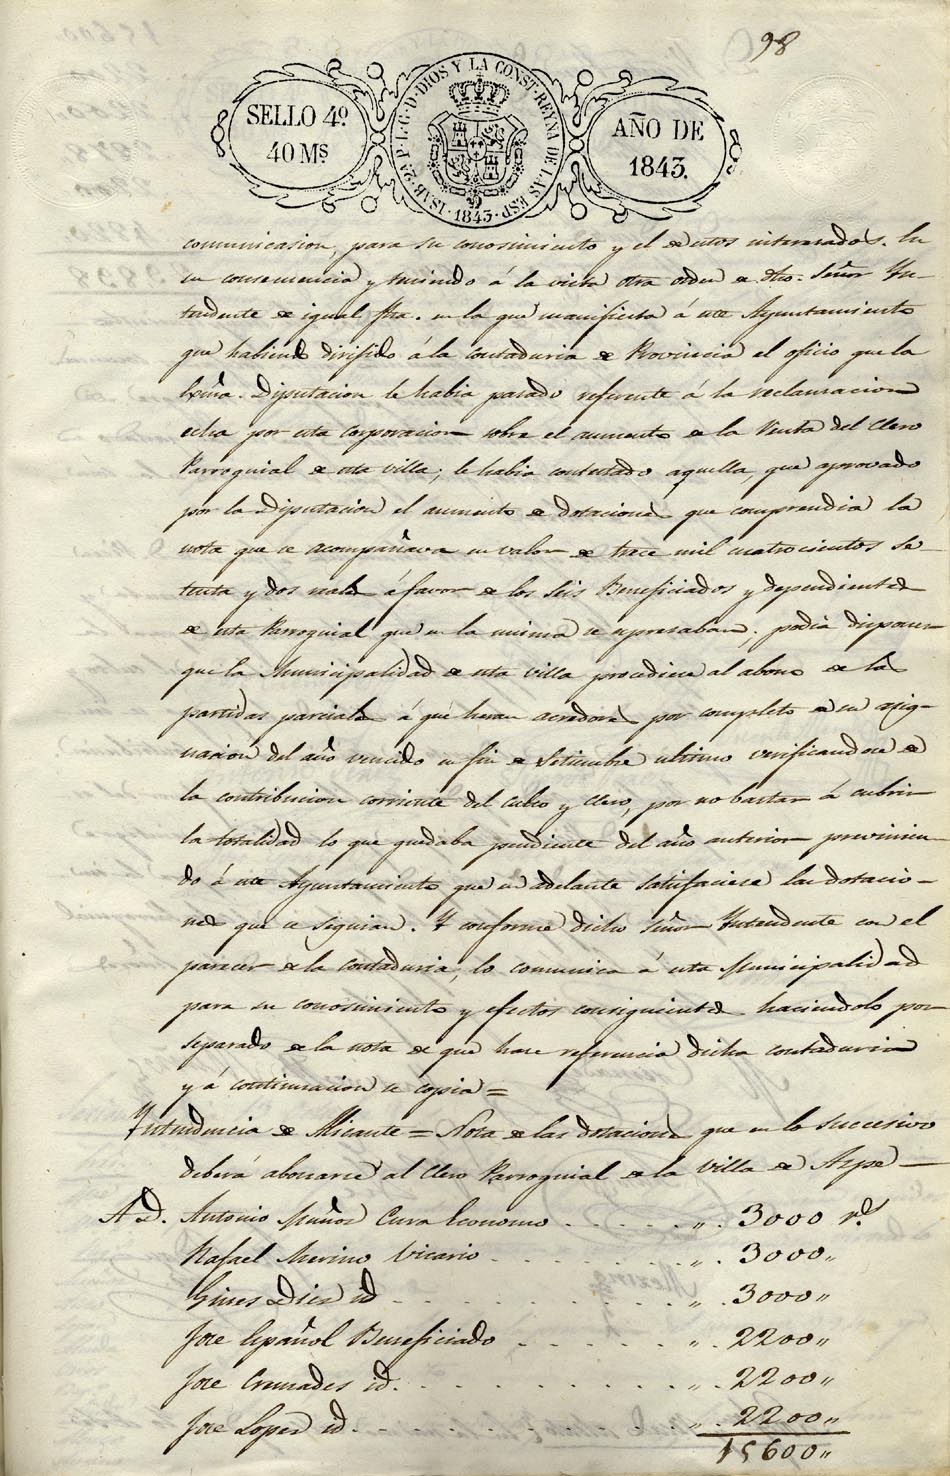 98
SELLO 4º
40 Ms
ISAB. 2ª P. L. G. D. DIOS Y LA CONST. REYNA DE LAS ESP.
1843
AÑO DE
1843.
comunicasion, para su conosimiento y el de estos interesados. En
su consecuencia y teniendo á la vista otra orden de dho. Señor Yn-
tendente de igual fha. en la que manifiesta á este Ayuntamiento
que habiendo dirifido á la contaduria de Provincia el oficio que la
Exma. Diputacion le habia pasado referente á la reclamacion
echa por esta Corporacion sobre el aumento de la Renta del Clero
Parroquial de esta villa; le habia contestado aquella, que aprovado
por la Diputacion el aumento de dotaciones que comprendia la
nota que se acompañava en valor de trece mil cuatrocientos se-
tenta y dos reales á favor de los Seis Beneficiados y dependientes
de esta Parroquial que en la misma se espresaban; podia disponer
que la Municipalidad de esta villa procediese al abono de las
partidas parciales á que heran acredores por completo de su asig-
nacion del año vencido en fin de Setiembre ultimo verificandose de
la contribucion corriente del Culto y Clero, por no bastar á cubrir
la totalidad lo que quedaba pendiente del año anterior previnien-
do á este Ayuntamiento que en adelante satisfaciese las dotacio-
nes que se siguian. Y conforme dicho Señor Yntendente con el
parecer de la contaduria, lo comunica á esta Municipalidad
para su conosimiento y efectos consiguientes haciendolo por
separado de la nota de que hace referencia dicha contaduria
y á continuacion se copia =
Yntendencia de Alicante = Nota de las dotaciones que en lo succesivo
deberá abonarse al Clero Parroquial de la Villa de Aspe
A D. Antonio Muñoz Cura Economo . . . . . " . 3000 rs
Rafael Merino Vicario . . . . . . . " . 3000 "
Gines Diez id . . . . . . . . . " . 3000 "
Jose Español Beneficiado . . . . . . " . 2200 "
Jose Cremades id. . . . . . . . . . " . 2200 "
Jose Lopez id . . . . . . . . . " . 2200 "
15600 "